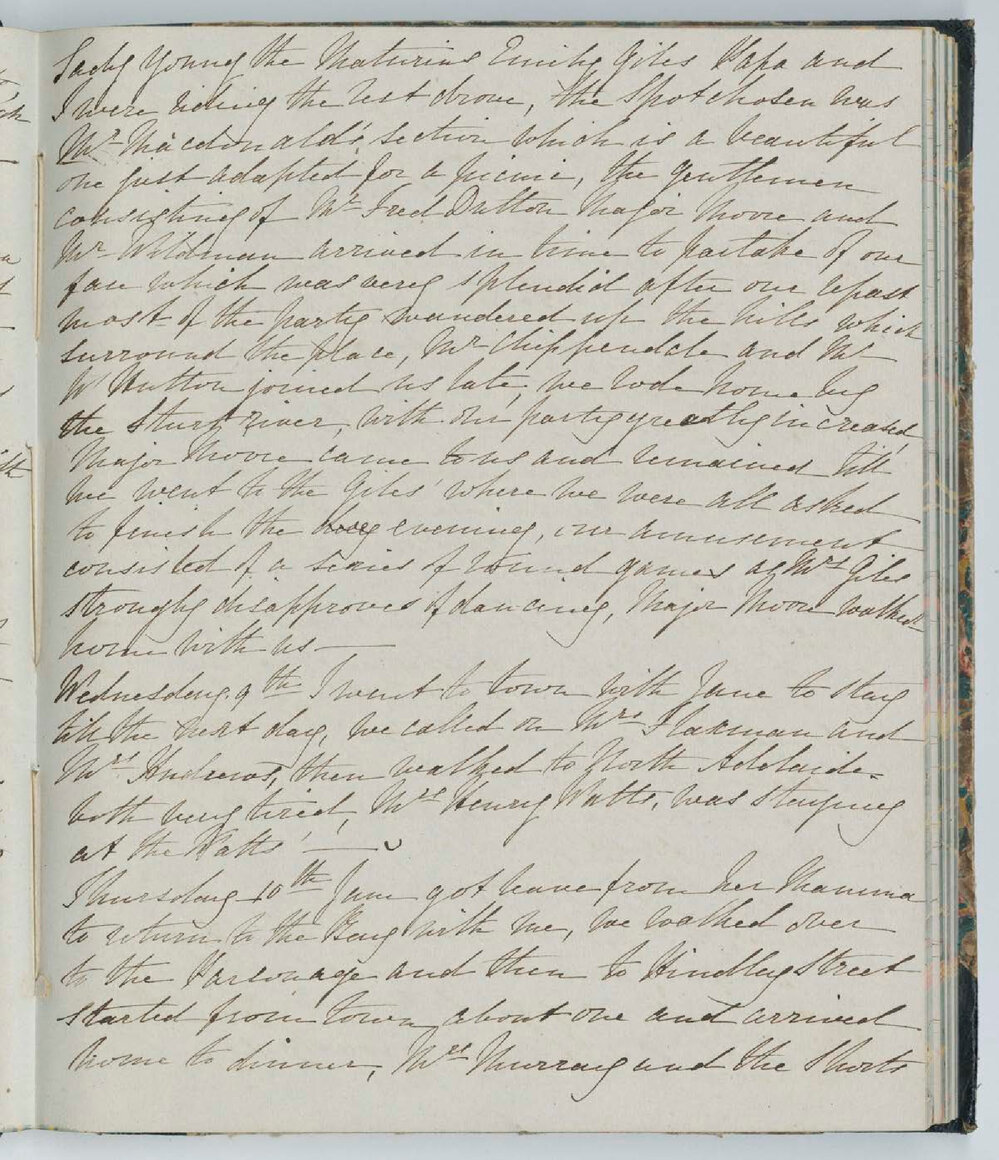 Lady Young the Maturins Emily Giles Papa and
I were riding the rest drove, the spot chosen was
Mr. Macdonald's section which is a beautiful
one just adapted for a picnic, the gentlemen
consisting of Mr. Fred Dutton Major Moore and
Mr. Wildman arrived in time to partake of our
fare which was very splendid after our repast
most of the party wandered up the hills which
surround the place, Mr Chippendale and Mr
W Hutton joined us late, we rode home by
the Sturt river, with our party greatly increased,
Major Moore came to us and remained till
we went to the Giles' where we were all asked
to finish the evening, our amusement
consisted of a series of round games as Mrs Giles
strongly disapproves of dancing, Major Moore walked
home with us —
Wednesday 9th I went to town with Jane to stay
till the next day, we called on Mrs Flaxman and
Mrs Andrews, then walked to North Adelaide.
both very tired, Mrs Henry Watts, was staying
at the Watts' —
Thursday 10th Jane got leave from her Mamma
to return to the Bay with me, we walked over
to the Parsonage and then to Hindley Street
started from town about one and arrived
home to dinner, Mrs Murray and the Shorts